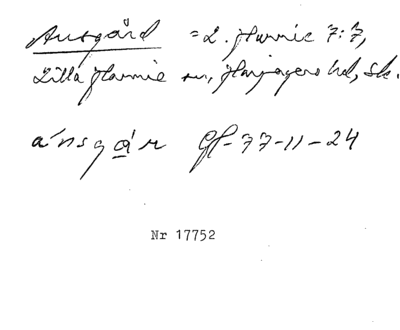 Ansgård = L. Harrie 7:7,
Lilla Harrie sn, Harjagers hd, Sk.
a´nsgår Gf-77-11-24
Nr 17752